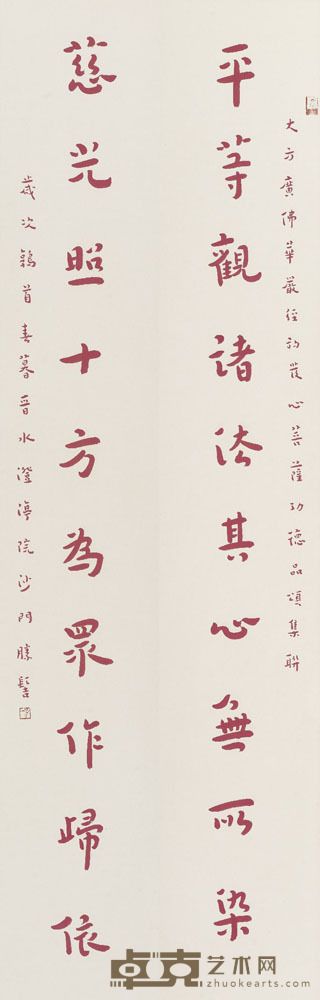 大方廣佛華嚴經初發心菩薩功德品頌集聯
平等觀諸法其心無所染
慈光照十方為眾作歸依
歲次鶉首春暮晉水澄渟院沙門勝髻
卓克艺术网
www.zhuokearts.com